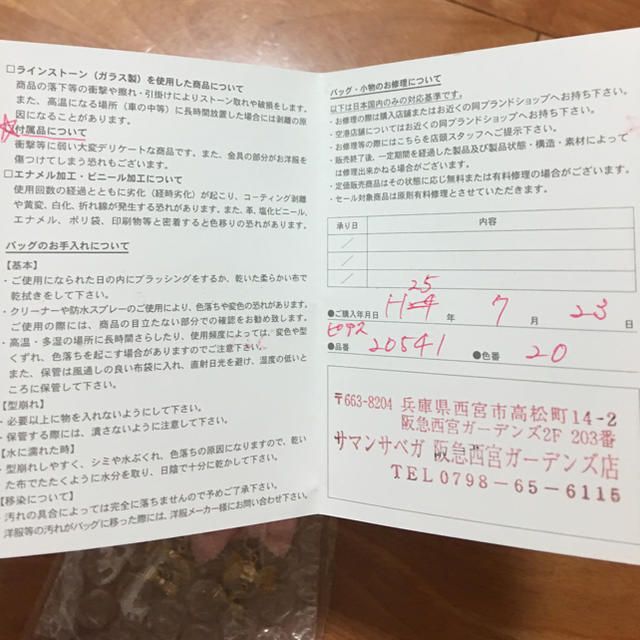 □ラインストーン（ガラス製）を使用した商品について
商品の落下等の衝撃や擦れ・引掛けによりストーン取れや破損をします。
また、高温になる場所（車の中等）に長時間放置した場合には剥離の原
因になることがあります。
☆付属品について
衝撃等に弱い大変デリケートな商品です。また、金具の部分がお洋服を
傷つけてしまう恐れもございます。
□エナメル加工・ビニール加工について
使用回数の経過とともに劣化（経時劣化）が起こり、コーティング剥離
や黄変、白化、折れ線が発生する恐れがあります。また、革、塩化ビニール、
エナメル、ポリ袋、印刷物等と密着すると色移りの恐れがあります。
バッグのお手入れについて
【基本】
・ご使用になられた日の内にブラッシングをするか、乾いた柔らかい布で
乾拭きをして下さい。
・クリーナーや防水スプレーのご使用により、色落ちや変色の恐れがあります。
ご使用の際には、商品の目立たない部分での確認をお勧め致します。
・高温・多湿の場所に長時間さらしたり、使用頻度によっては、変色や型
くずれ、色落ちを起こす場合がありますのでご注意下さい。
また、保管は風通しの良い布袋に入れ、直射日光を避け、湿度の低いと
ころに保管して下さい。
【型崩れ】
・必要以上に物を入れないようにして下さい。
・保管する際には、潰さないように注意して下さい。
【水に濡れた時】
・型崩れしやすく、シミや水ぶくれ、色落ちの原因になりますので、乾い
た布でたたくように水分を取り、日陰で十分に乾かして下さい。
【移染について】
・汚れの具合によっては完全に落ちませんので予めご了承下さい。
洋服等の汚れがバッグに移った際には、洋服メーカー様にお問い合わせ下さい。
バッグ・小物のお修理について
以下は日本国内のみの対応基準です。
・お修理の際は購入店舗またはお近くの同ブランドショップへお持ち下さい。
・空港店舗についてはお近くの同ブランドショップへお持ち下さい。
・お修理等の際にはこちらを店頭スタッフへご提示下さい。
・販売終了後、一定期間を経過した製品及び製品状態・構造・素材によって
は修理出来かねる場合がございます。
・定価販売商品はその状態に応じ無料または有料修理の場合がございます。
・セール対象商品は原則有料修理とさせていただきます。
承り日 内容
／
／
／
25
●ご購入年月日 H4 年 7 月 23 日
ピアス
●品番 20541 ●色番 20
〒663-8204 兵庫県西宮市高松町14-2
阪急西宮ガーデンズ2F 203番
サマンサベガ 阪急西宮ガーデンズ店
TEL0798-65-6115